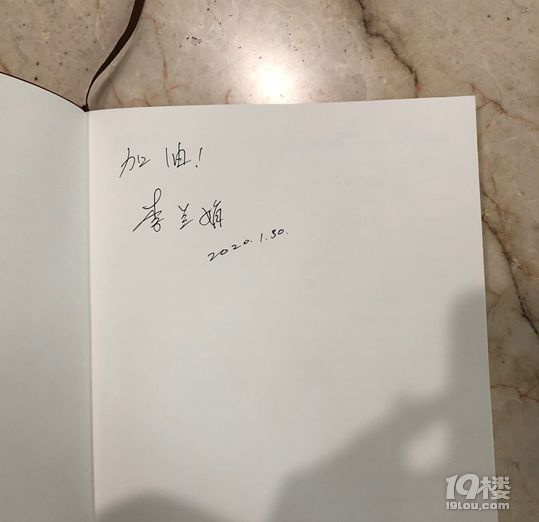 加油!
李兰娟
2020.1.30.
19楼
19lou.com